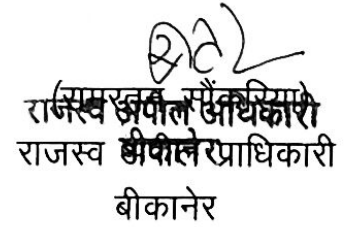 (रामरतन सौंकरिया)
राजस्व अपील अधिकारी
बीकानेर
राजस्व अपील प्राधिकारी
बीकानेर